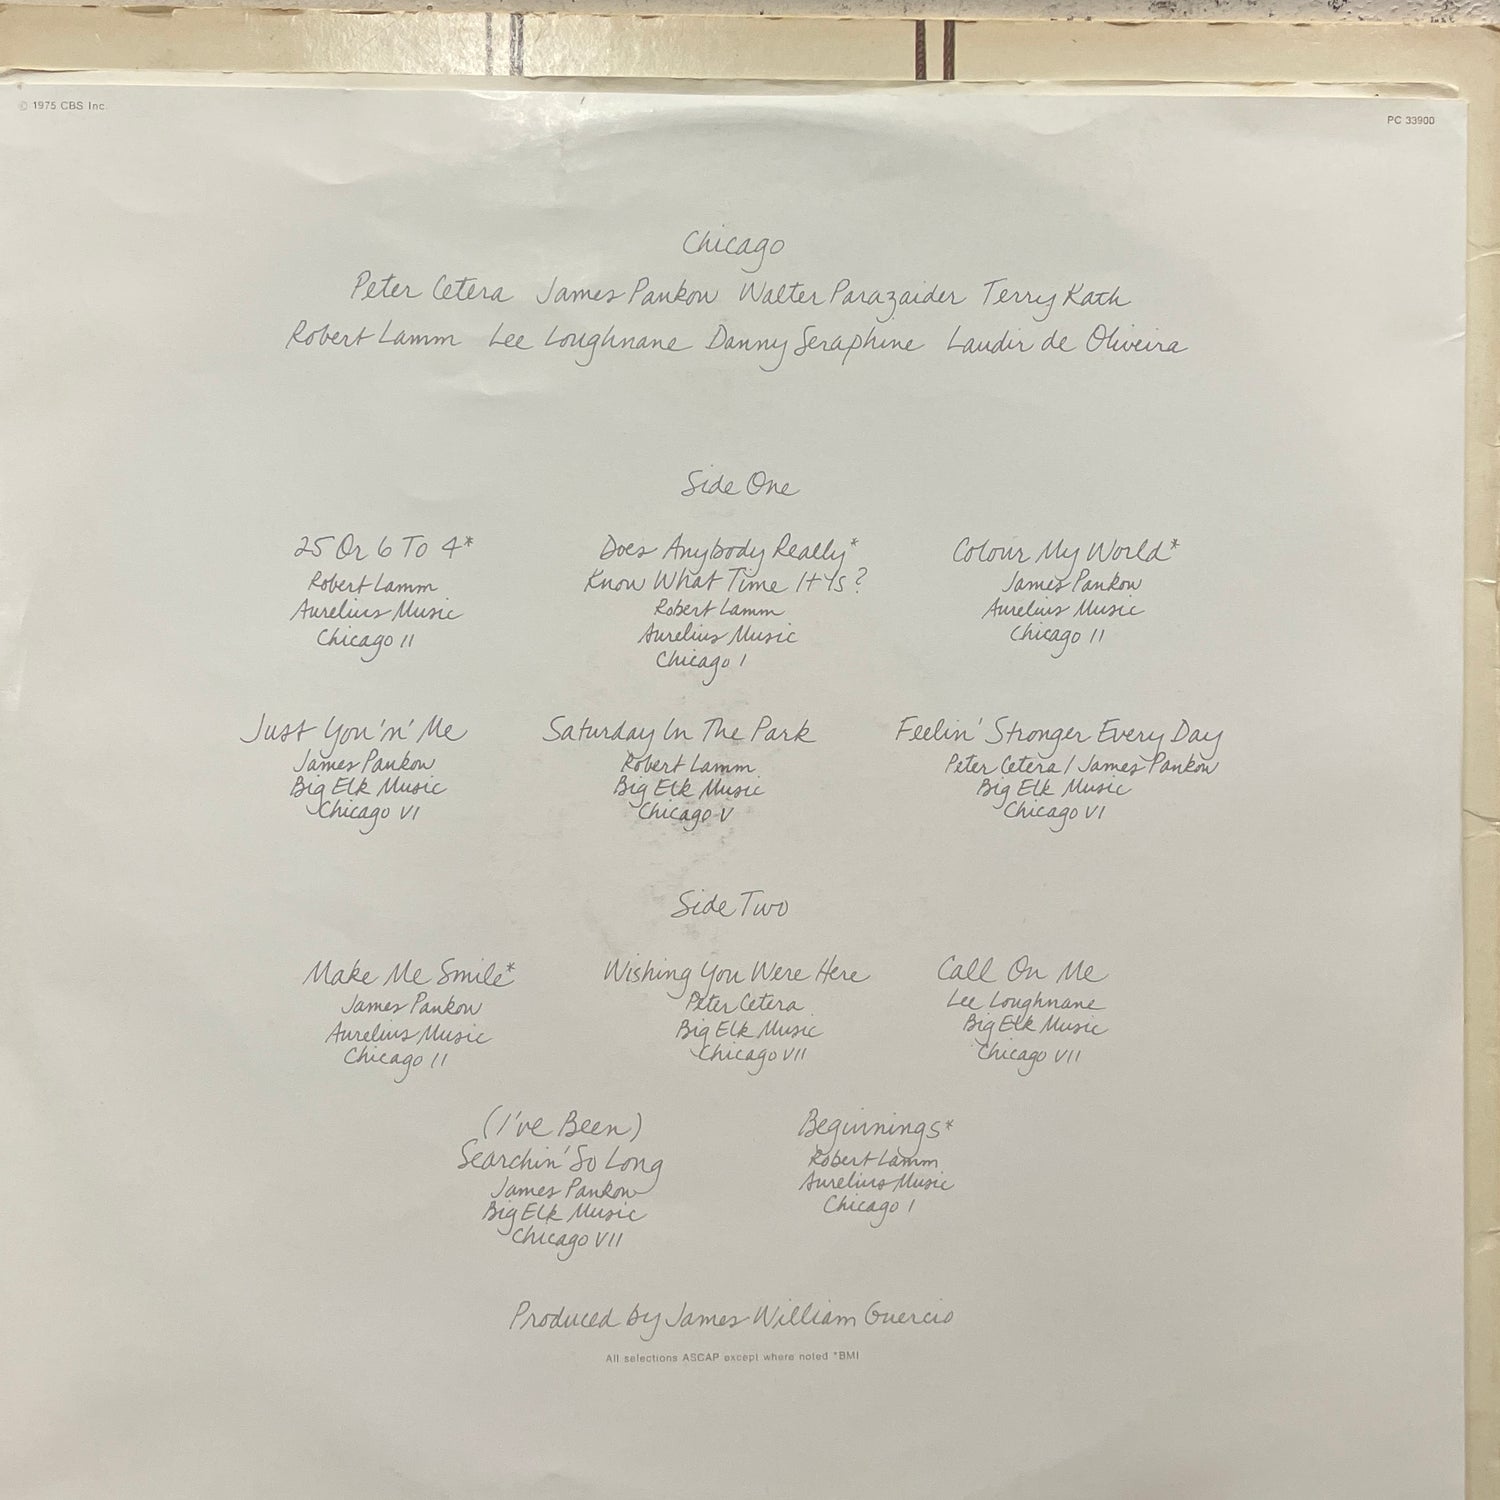 © 1975 CBS Inc.
PC 33900
Chicago
Peter Cetera James Pankow Walter Parazaider Terry Kath
Robert Lamm Lee Loughnane Danny Seraphine Laudir de Oliveira
Side One
25 Or 6 To 4*
Robert Lamm
Aurelius Music
Chicago II
Does Anybody Really*
Know What Time It Is?
Robert Lamm
Aurelius Music
Chicago I
Colour My World*
James Pankow
Aurelius Music
Chicago II
Just You 'n' Me
James Pankow
Big Elk Music
Chicago VI
Saturday In The Park
Robert Lamm
Big Elk Music
Chicago V
Feelin' Stronger Every Day
Peter Cetera / James Pankow
Big Elk Music
Chicago VI
Side Two
Make Me Smile*
James Pankow
Aurelius Music
Chicago II
Wishing You Were Here
Peter Cetera
Big Elk Music
Chicago VII
Call On Me
Lee Loughnane
Big Elk Music
Chicago VII
(I've Been)
Searchin' So Long
James Pankow
Big Elk Music
Chicago VII
Beginnings*
Robert Lamm
Aurelius Music
Chicago I
Produced by James William Guercio
All selections ASCAP except where noted *BMI